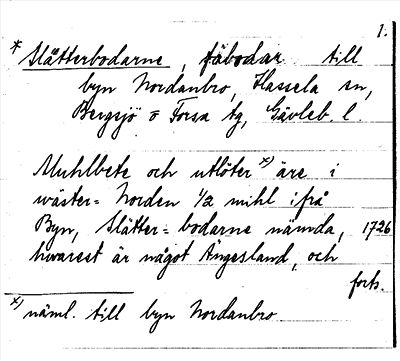 1.
* Slätterbodarne, fäbodar till
byn Nordanbro, Hassela sn,
Bergsjö o Forsa tg, Gävleb. l.
Muhlbete och utlöter x) äre i
wäster= Norden 1/2 mihl ifrå
Byn, Slätter=boderne nämda, 1726
hwarest är något Ängesland, och
forts.
x) näml. till byn Nordanbro